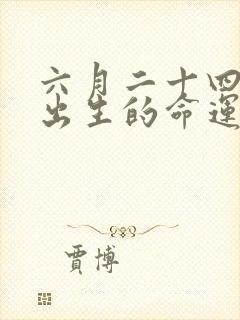 六月二十四
出生的命運
賈博